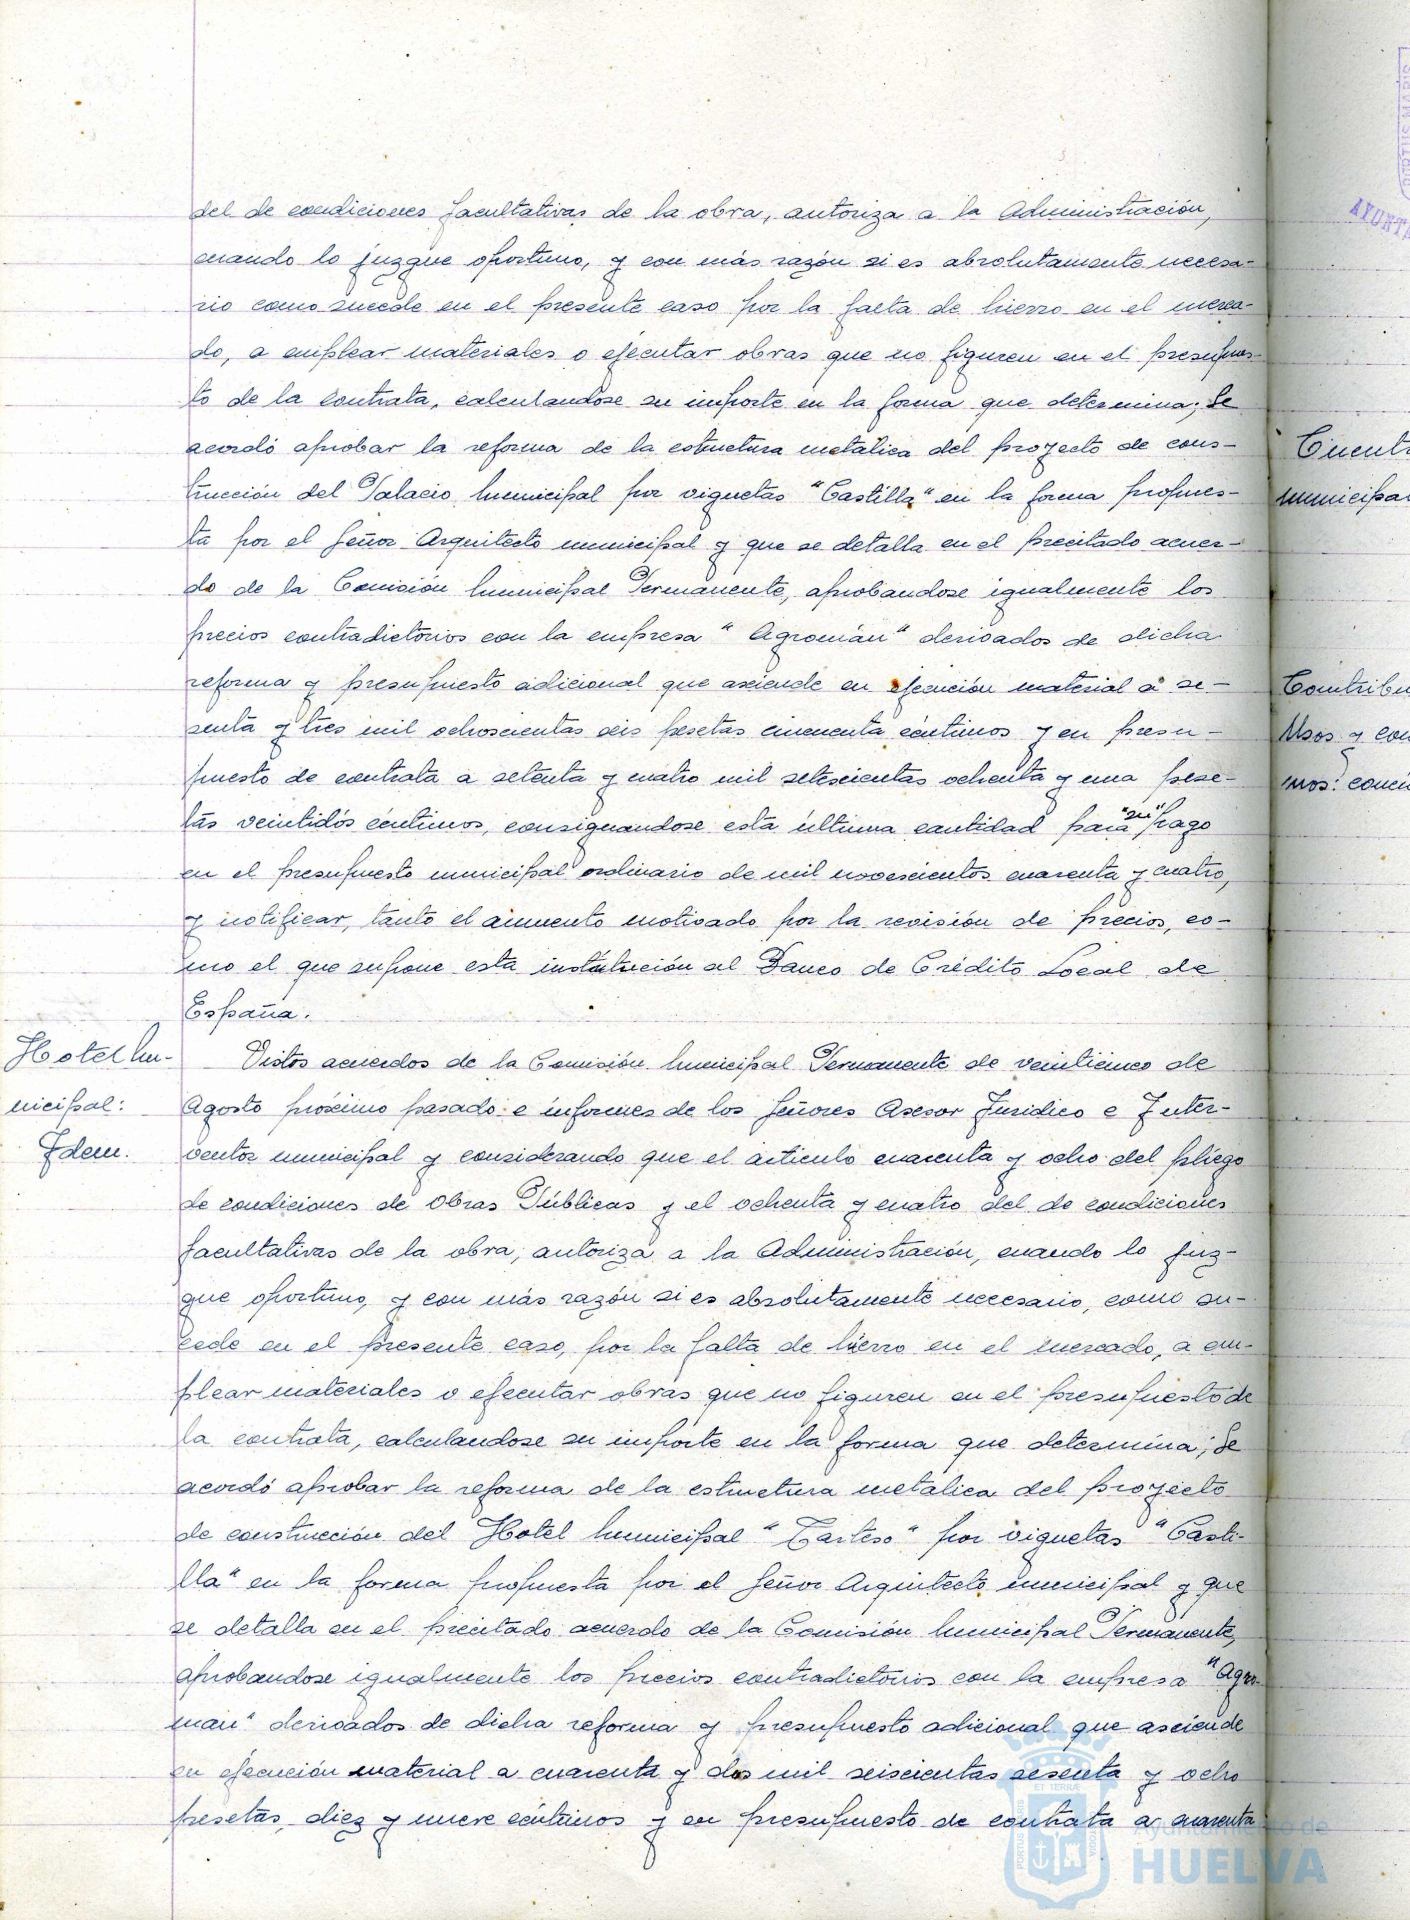 del de condiciones facultativas de la obra, autoriza a la Administración,
cuando lo juzgue oportuno, y con más razón si es absolutamente necesa-
rio como sucede en el presente caso por la falta de hierro en el merca-
do, a emplear materiales o ejecutar obras que no figuren en el presupues-
to de la contrata, calculandose su importe en la forma que determina; Se
acordó aprobar la reforma de la estructura metalica del proyecto de cons-
trucción del Palacio Municipal por viguetas "Castilla" en la forma propues-
ta por el Señor Arquitecto municipal y que se detalla en el precitado acuer-
do de la Comisión Municipal Permanente, aprobandose igualmente los
precios contradictorios con la empresa "Agromán" derivados de dicha
reforma y presupuesto adicional que asciende en ejecución material a se-
senta y tres mil ochoscientas seis pesetas cincuenta céntimos y en presu-
puesto de contrata a setenta y cuatro mil setescientas ochenta y una pese-
tas veintidós céntimos, consignandose esta última cantidad para "su" pago
en el presupuesto municipal ordinario de mil novescientos cuarenta y cuatro,
y notificar, tanto el aumento motivado por la revisión de precios, co-
mo el que supone esta institución al Banco de Crédito Local de
España.
Hotel Mu-
nicipal:
Idem.
Vistos acuerdos de la Comisión Municipal Permanente de veinticinco de
Agosto próximo pasado e informes de los Señores Asesor Jurídico e Inter-
ventor municipal y considerando que el artículo cuarenta y ocho del pliego
de condiciones de Obras Públicas y el ochenta y cuatro del de condiciones
facultativas de la obra, autoriza a la Administración, cuando lo juz-
gue oportuno, y con más razón si es absolutamente necesario, como su-
cede en el presente caso, por la falta de hierro en el mercado, a em-
plear materiales o ejecutar obras que no figuren en el presupuesto de
la contrata, calculandose su importe en la forma que determina; Se
acordó aprobar la reforma de la estructura metalica del proyecto
de construcción del Hotel Municipal "Tarteso" por viguetas "Casti-
lla" en la forma propuesta por el Señor Arquitecto municipal y que
se detalla en el precitado acuerdo de la Comisión Municipal Permanente,
aprobandose igualmente los precios contradictorios con la empresa "Agro-
man" derivados de dicha reforma y presupuesto adicional que asciende
en ejecución material a cuarenta y dos mil seiscientas sesenta y ocho
pesetas, diez y nueve céntimos y en presupuesto de contrata a cuarenta
Ayuntamiento de
HUELVA